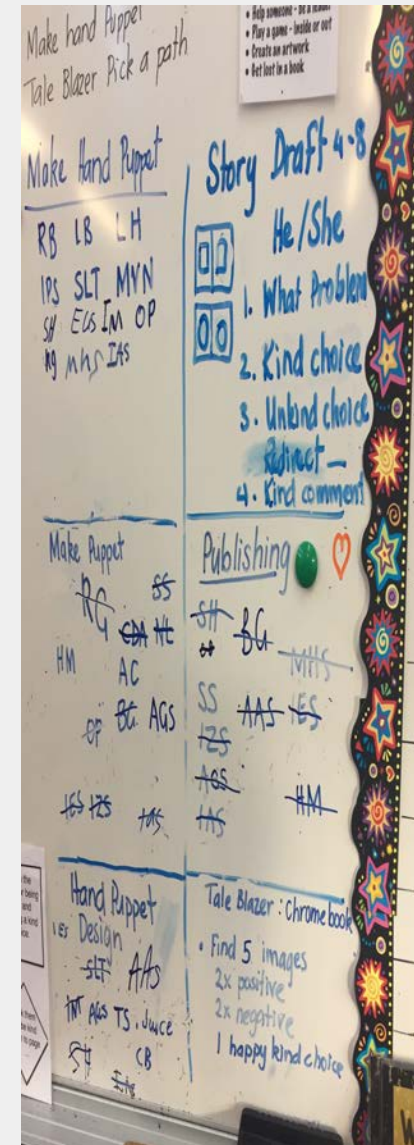 Make hand Puppet
Tale Blazer Pick a path
• Help someone - be a
• Play a game - inside or out
• Create an artwork
• Get lost in a book
Make Hand Puppet
RB LB LH
IPS SLT MYN
SH EGS IM OP
Kg mhs IAS
Story Draft 4-8
He/She
1. What Problem
2. Kind choice
3. Unkind choice
Redirect —
4. Kind comment
Make Puppet
RG SS
CDA NL
HM AC
OP BG AGS
IES IZS IAS
Publishing
SH BG
MHS
SS AAS IES
IZS
AGS HM
IAS
Hand Puppet
IES Design
SLT AAS
TNT AGS TS. Juice
CB
Tale Blazer: Chromebook
• Find 5 images
2x positive
2x negative
1 happy kind choice